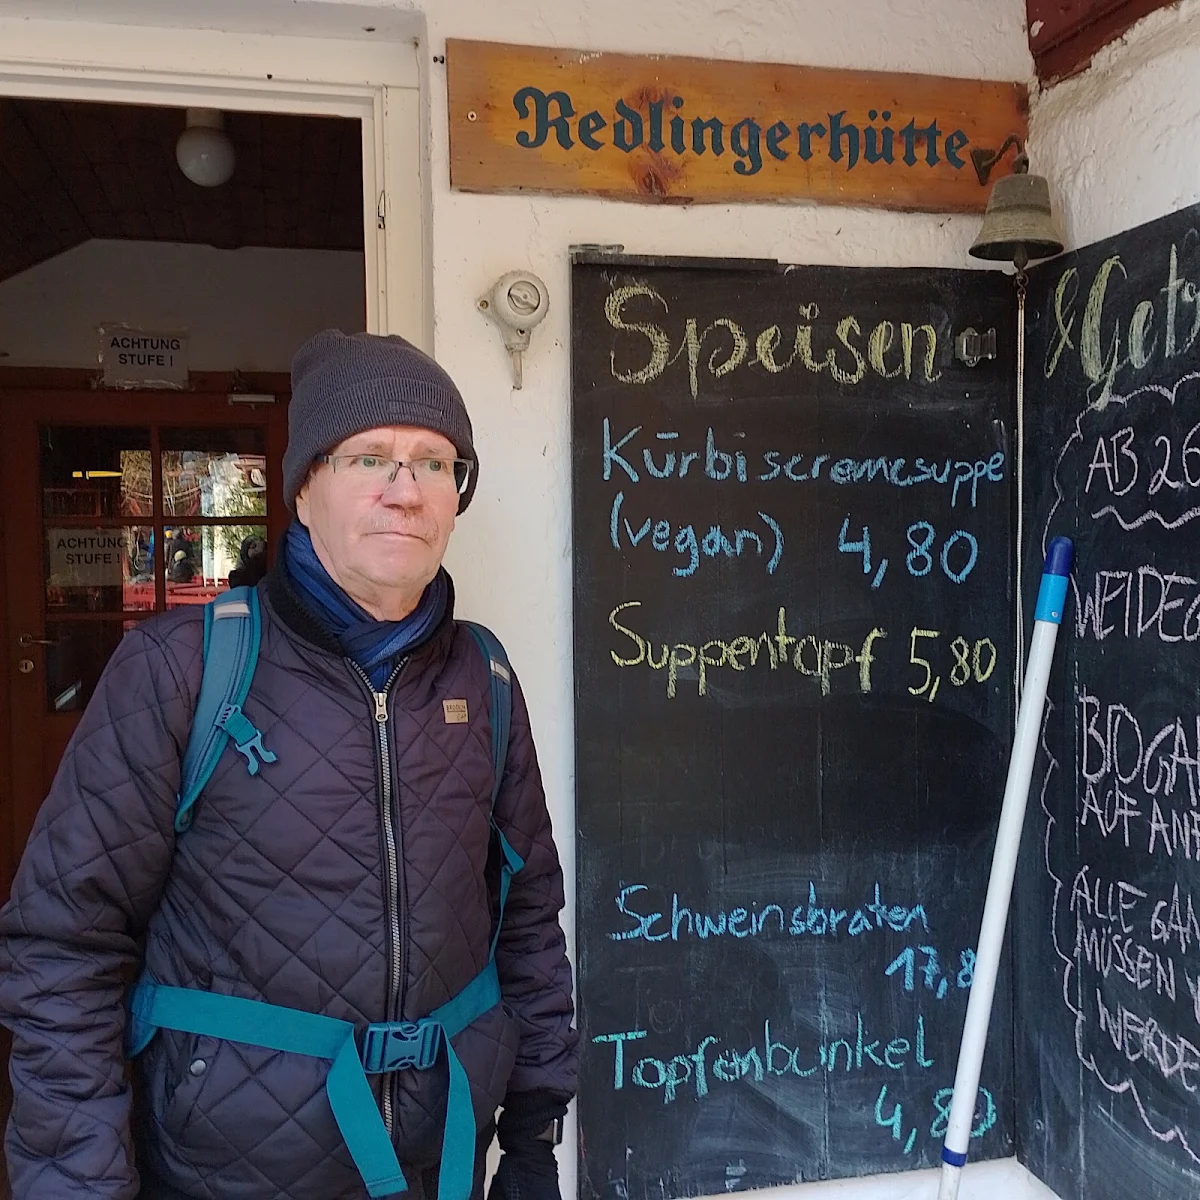 Redlingerhütte
ACHTUNG
STUFE !
ACHTUNG
STUFE !
Speisen
Kürbiscremesuppe
(vegan) 4,80
Suppentopf 5,80
Schweinsbraten
17,8
Topfenbunkel
4,80
& Get
AB 26
WEIDEG
BIOGA
AUF ANF
ALLE GAN
MÜSSEN V
WERDE